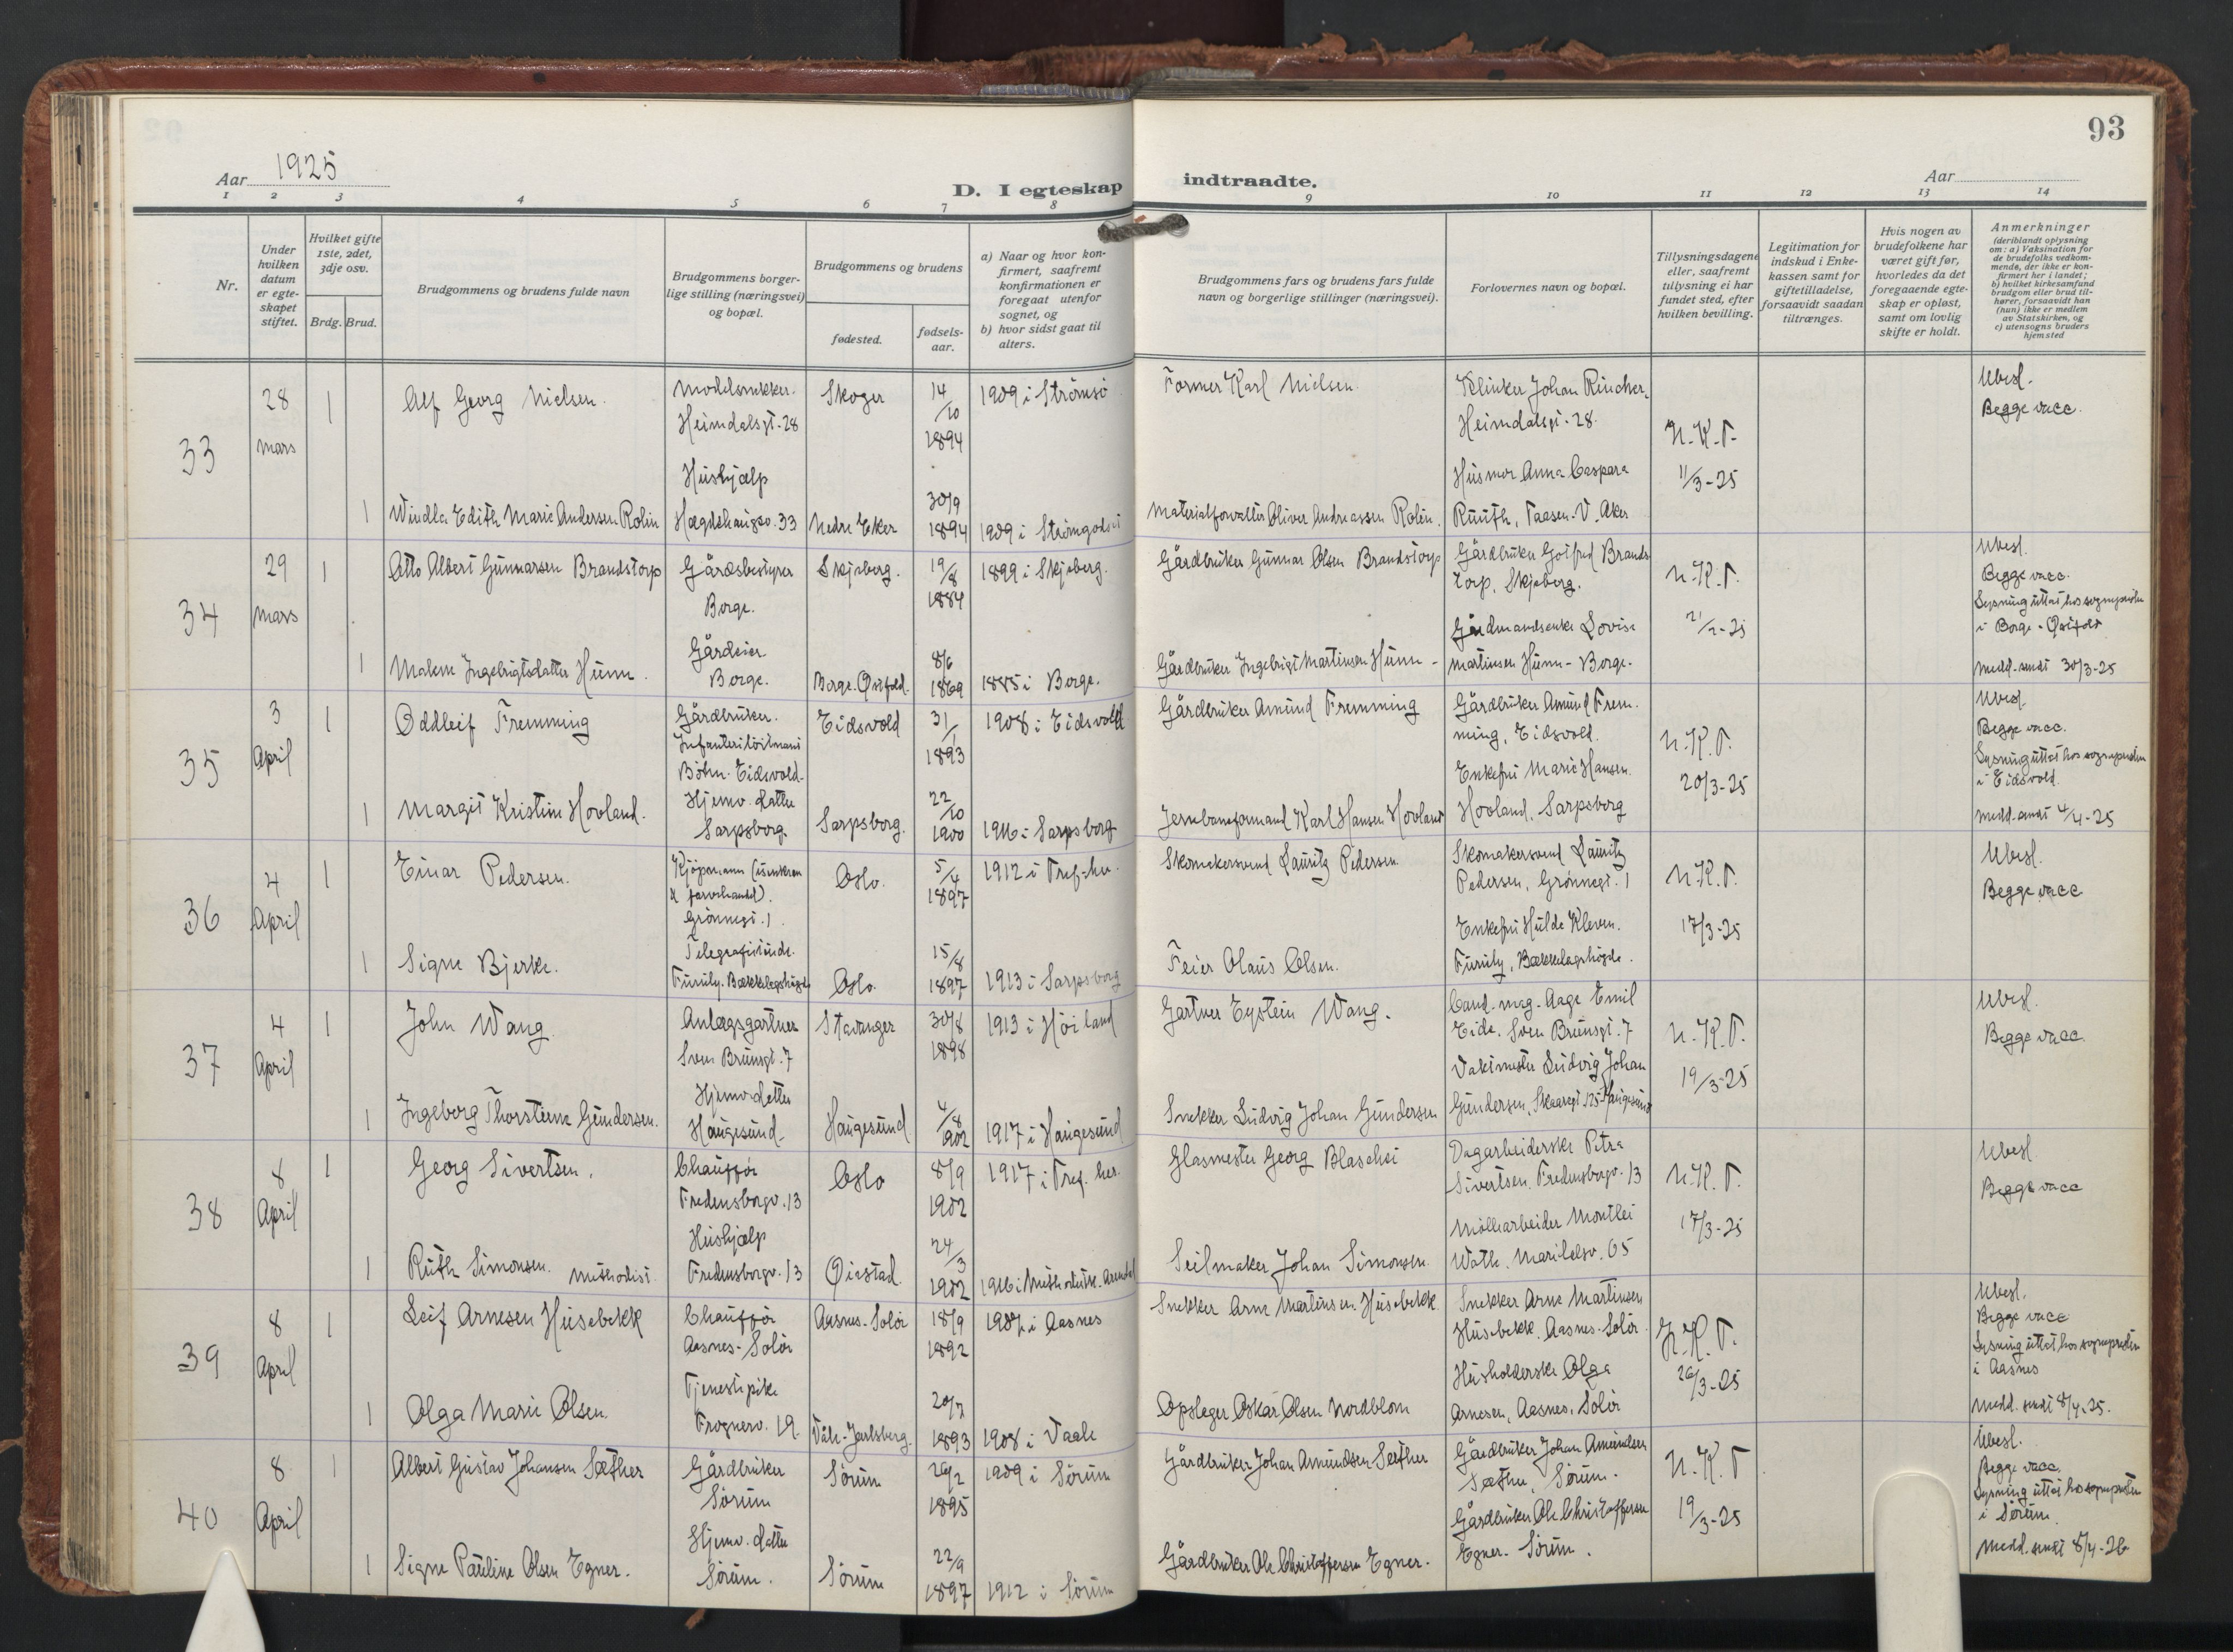 93
Aar 1925
D. I egteskap indtraadte.
Aar
1 2 3 4 5 6 7 8 9 10 11 12 13 14
Nr.
Under hvilken datum er egte-skapet stiftet.
Hvilket gifte 1ste, 2det, 3dje osv.
Brdg. Brud.
Brudgommens og brudens fulde navn
Brudgommens borger-lige stilling (næringsvei) og bopæl.
Brudgommens og brudens
fødested.
fødsels-aar.
a) Naar og hvor kon-firmert, saafremt konfirmationen er foregaat utenfor sognet, og
b) hvor sidst gaat til alters.
Brudgommens fars og brudens fars fulde navn og borgerlige stillinger (næringsvei).
Forlovernes navn og bopæl.
Tillysningsdagene eller, saafremt tillysning ei har fundet sted, efter hvilken bevilling.
Legitimation for indskud i Enke-kassen samt for giftetilladelse, forsaavidt saadan tiltrænges.
Hvis nogen av brudefolkene har været gift før, hvorledes da det foregaaende egte-skap er opløst, samt om lovlig skifte er holdt.
Anmerkninger
(deriblandt oplysning om: a) Vaksination for de brudefolks vedkom-mende, der ikke er kon-firmert her i landet;
b) hvilket kirkesamfund brudgom eller brud til-hører, forsaavidt han (hun) ikke er medlem av Statskirken, og
c) utensogns bruders hjemsted
33
28 mars
1 Alf Georg Nielsen.
Modelsnekker. Heimdalsgt. 28
Skoger
14/10 1894
1909 i Strømsø
Former Karl Nielsen.
Klinker Johan
Heimdalsgt. 28.
N.K.T.
11/3-25
Ubesl.
Begge vacc.
1 Windla Edith Marie Andersen Rolin
Hushjælp
Hægdehaugsv. 33
Nedre Eker
30/9 1894
1909 i Strømgodset
Materialforvalter Oliver Andreassen Rolin.
Husmor Anna Caspara
Ruuth, Taasen. V. Aker
34
29 mars
1 Otto Albert Gunnarsen Brandstorp
Gårdsbestyrer
Borge.
Skjeberg.
19/8 1884
1899 i Skjeberg.
Gårdbruker Gunnar Olsen Brandstorp
Gårdbruker Gotfred Brands-
torp, Skjeberg.
N.K.T.
21/2-25
Ubesl.
Begge vacc.
Lysning uttat hos sognepresten
i Borge - Østfold
medd. sendt 30/3-25
1 Malene Ingebrigtsdatter Hunn.
Gårdeier
Borge.
Borge. Østfold.
8/6 1869
1885 i Borge.
Gårdbruker Ingebrigt Martinsen Hunn -
Gårdmandsenke Lovise
Martinsen Hunn - Borge.
35
3 April
1 Oddleif Fremming
Gårdbruker.
Infanteriløitnant
Bøhn. Eidsvold.
Eidsvold
31/1 1893
1908 i Eidsvold
Gårdbruker Amund Fremming
Gårdbruker Amund Frem-
ming, Eidsvold.
N.K.T.
20/3-25
Ubesl.
Begge vacc.
Lysning uttat hos sognepresten
i Eidsvold.
medd. sendt 4/4-25
1 Margit Kristine Hovland.
Hjemv. datter
Sarpsborg.
Sarpsborg.
22/10 1900
1916 i Sarpsborg
Jernbaneformand Karl Hansen Hovland
Enkefru Marie Hansen
Hovland, Sarpsborg
36
4 April
1 Einar Pedersen.
Kjøpmann (isenkram
& farvehandel).
Grønnegt. 1.
Oslo.
5/4 1897
1912 i Tref. ki.
Skomakersvend Lauritz Pedersen.
Skomakersvend Lauritz
Pedersen, Grønnegt. 1
N.K.T.
17/3-25
Ubesl.
Begge vacc
1 Signe Bjerke.
Furuly. Bækkelagshøgda
Oslo.
15/8 1897
1913 i Sarpsborg
Feier Olaus Olsen.
Enkefru Hulde Kleven.
Furuly, Bækkelagshøgda.
37
4 April
1 John Wang.
Anlægsgartner
Sven Brunsgt. 7
Stavanger
30/8 1898
1913 i Høiland
Gartner Eystein Wang.
Cand. mag. Aage Emil
Eide. Sven Brunsgt. 7
N.K.T.
19/3-25
Ubesl.
Begge vacc.
1 Ingeborg Thorstine Gundersen.
Hjemv. datter
Haugesund.
Haugesund
4/8 1902
1917 i Haugesund
Snekker Ludvig Johan Gundersen
Vaktmester Ludvig Johan
Gundersen, Skaaregt 125 Haugesund
38
8 April
1 Georg Sivertsen.
Chauffør
Fredensborgv. 13
Oslo
8/9 1902
1917 i Tref. her.
Glasmester Georg Blaschei
Dagarbeiderske Petra
Sivertsen. Fredensborgv. 13
N.K.T.
17/3-25
Ubesl.
Begge vacc
1 Ruth Simonsen. Methodist.
Hushjælp
Fredensborgv. 13
Øiestad.
24/3 1902
1916 i Methodistk. Arendal
Seilmaker Johan Simonsen.
Møllearbeider
Wathe. Maridalsv. 65
39
8 April
1 Leif Arnesen Husebekk
Chauffør
Aasnes - Solør
Aasnes - Solør
18/9 1892
1907 i Aasnes
Snekker Arne Martinsen Husebekk.
Snekker Arne Martinsen
Husebekk. Aasnes. Solør.
N.K.T.
26/3-25
Ubesl.
Begge vacc
Lysning uttat hos sognepresten
i Aasnes
Medd. sendt 8/4-25.
1 Olga Marie Olsen.
Tjenestepike
Frognerv. 19.
Våle - Jarlsberg.
20/7 1893
1908 i Vaale
Opsleger Oskar Olsen Nordblom
Husholderske Olga
Arnesen, Aasnes, Solør
40
8 April
1 Albert Gustav Johansen Sæther
Gårdbruker
Sørum
Sørum
26/2 1895
1909 i Sørum
Gårdbruker Johan Amundsen Sæther
Gårdbruker Johan Amundsen
Sæther, Sørum.
N.K.T
19/3-25
Ubesl.
Begge vacc.
Lysning uttat hos sognepresten
i Sørum.
Medd. sendt 8/4-26
1 Signe Pauline Olsen Egner.
Hjemv. datter
Sørum.
Sørum
22/9 1897
1912 i Sørum
Gårdbruker Ole Christoffersen Egner.
Gårdbruker Ole Christoffersen
Egner. Sørum.